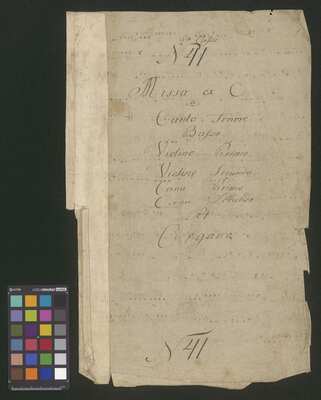 N 41
Missa ex C
a
Canto Tenore
Basso
Violino Primo
Violino Secundo
Cornu Primo
Cornu Secundo
et
Organo
N 41